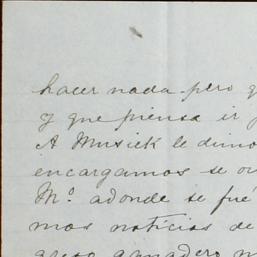 hacer nada pero
y que piensa ir
A Musick le dimo
encargamos se
Mº adonde se fué
mas noticias de
ganadero